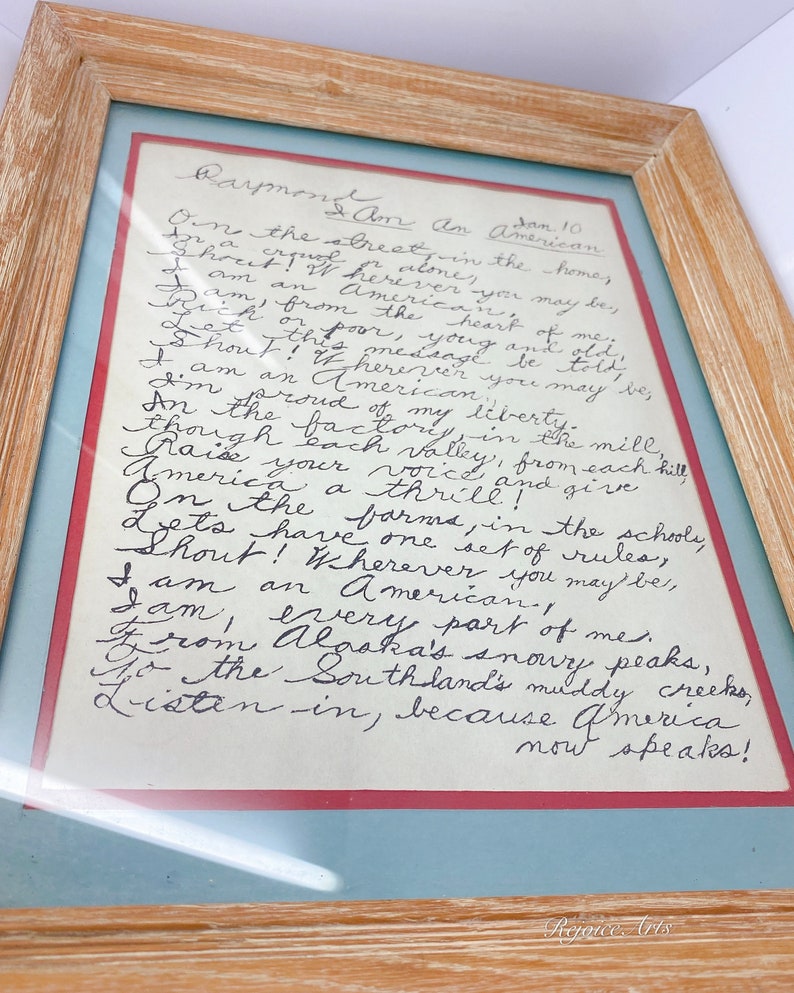 Raymond
Jan. 10
I Am An American
On the street, in the home,
In a crowd or alone,
Shout! Wherever you may be,
I am an American,
I am, from the heart of me.
Rich or poor, youg and old,
Let this message be told,
Shout! Wherever you may be,
I am an American,
I'm proud of my liberty.
In the factory, in the mill,
though each valley, from each hill,
Raise your voice and give
America a thrill!
On the farms, in the schools,
Lets have one set of rules,
Shout! Wherever you may be,
I am an American,
I am, every part of me.
From Alaska's snowy peaks,
To the Southland's muddy creeks,
Listen in, because America
now speaks!
RejoiceArts